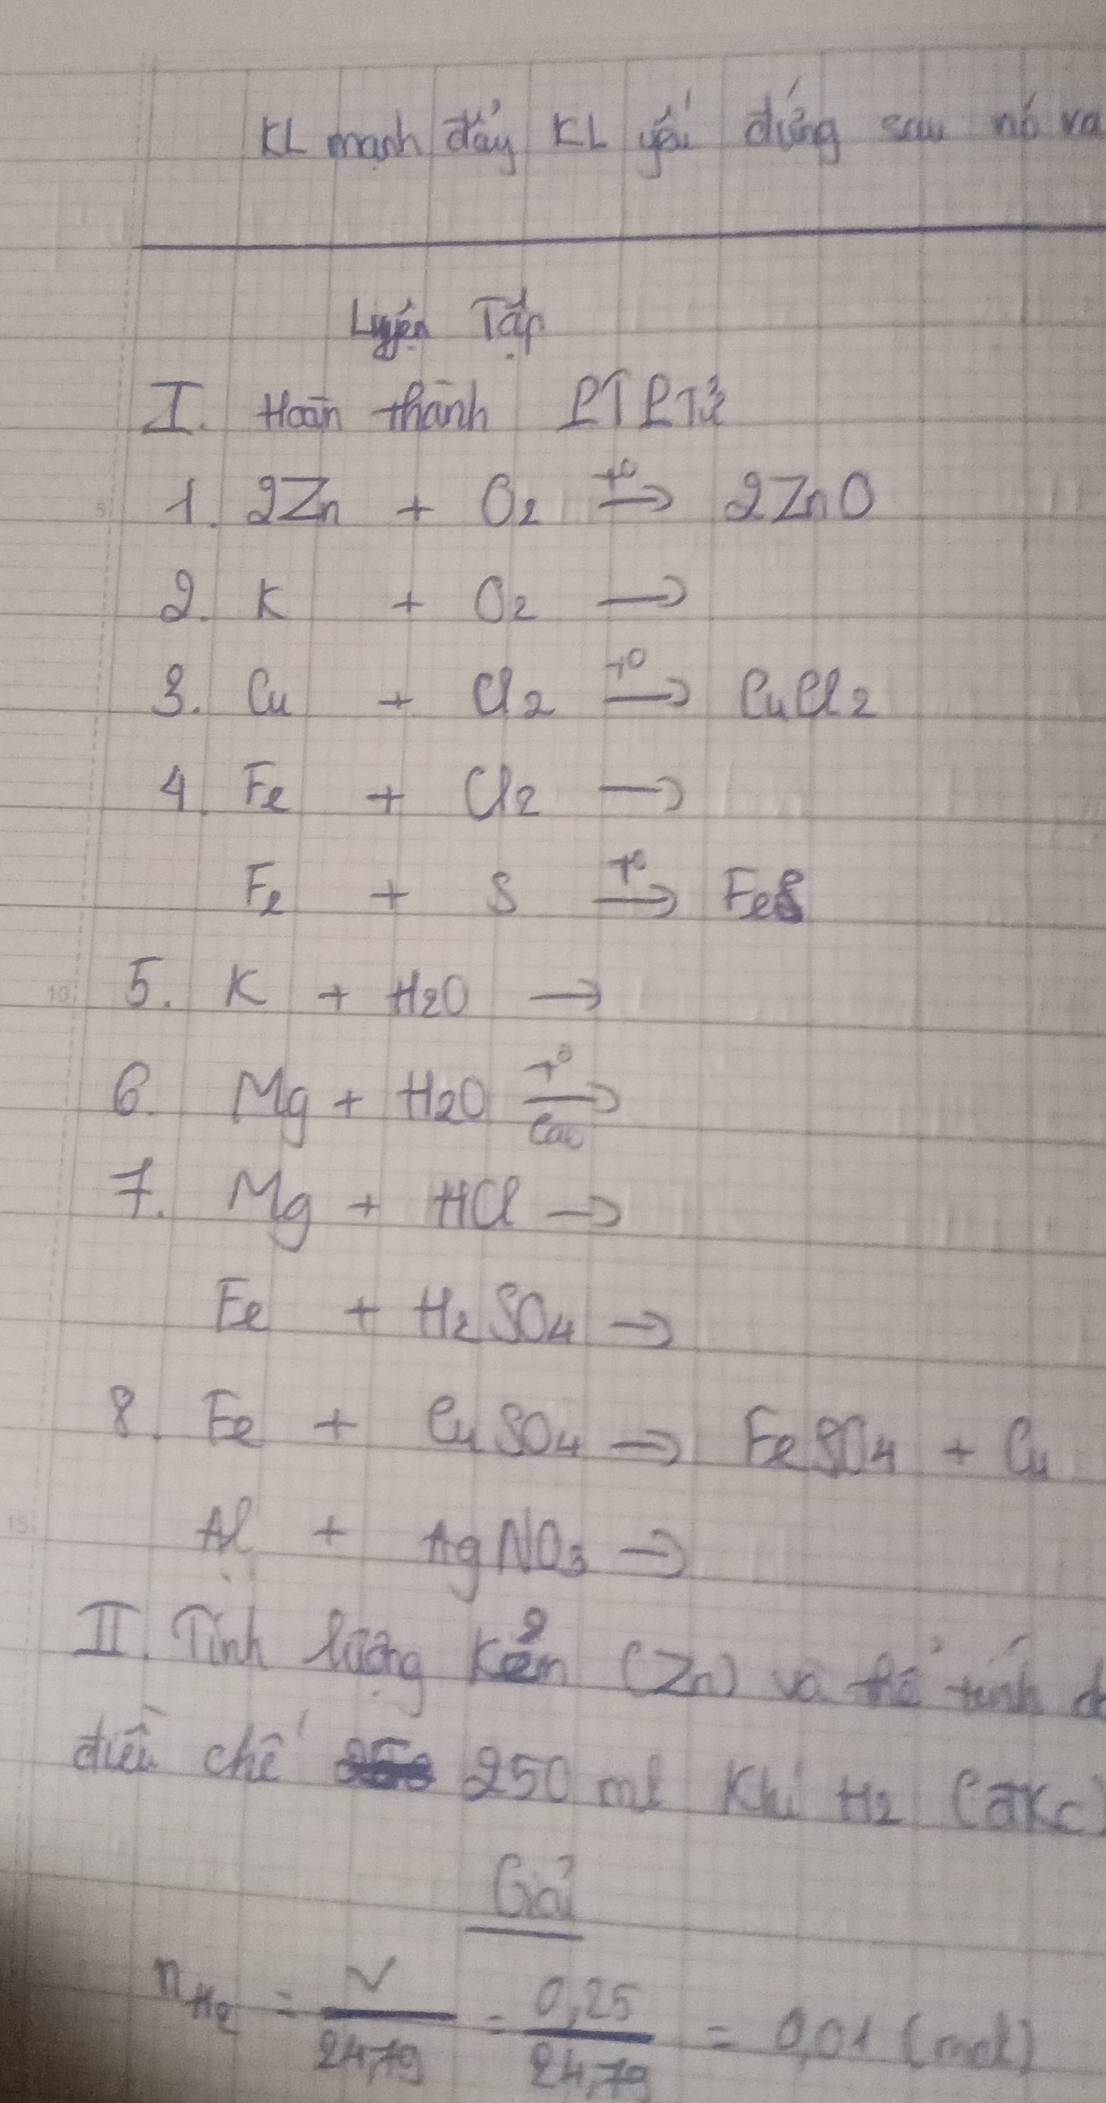 KL mạnh đẩy KL yếu đứng sau nó va
Luyện Tập
I. Hoàn thành PTPTử
1. 2Zn + O2 t° → 2ZnO
2. K + O2 →
3. Cu + Cl2 t° → CuCl2
4. Fe + Cl2 →
Fe + S t° → FeS
5. K + H2O →
6. Mg + H2O t° → cao
7. Mg + HCl →
Fe + H2SO4 →
8. Fe + CuSO4 → FeSO4 + Cu
Al + AgNO3 →
II. Tính lượng Kẽm (Zn) và thể tính
điều chế 250 ml Khí H2 (đkc)
Giải
nH2 = V/24,79 = 0,25/24,79 = 0,01 (mol)